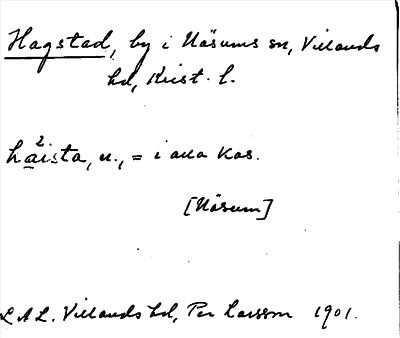 Hagstad, by i Näsums sn, Villands
hd, Krist. l.
haista, n., = i alla kas.
[Näsum]
L A L. Villands hd, Per Larsson 1901.